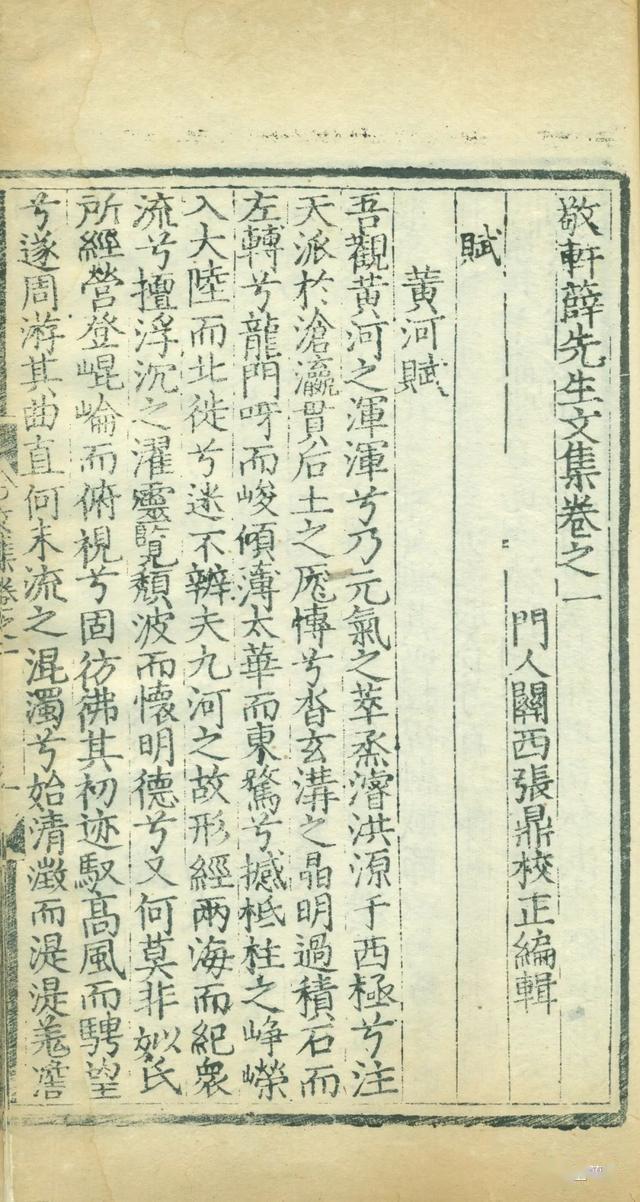 敬軒薛先生文集卷之一
門人關西張鼎校正編輯
賦
黃河賦
吾觀黃河之渾渾兮乃元氣之萃烝濬洪源于西極兮注
天派於滄瀛貫后土之庬愽兮沓玄溝之晶明過積石而
左轉兮龍門呀而峻傾薄太華而東騖兮撼柢柱之崢嶸
入大陸而北徙兮迷不辨夫九河之故形經兩海而紀衆
流兮擅浮沉之濯靈覽頽波而懷明德兮又何莫非姒氏
所經營登崐崘而俯視兮固彷彿其初迹馭髙風而騁望
兮遂周游其曲直何末流之混濁兮始清澂而湜湜羗
文集卷之一